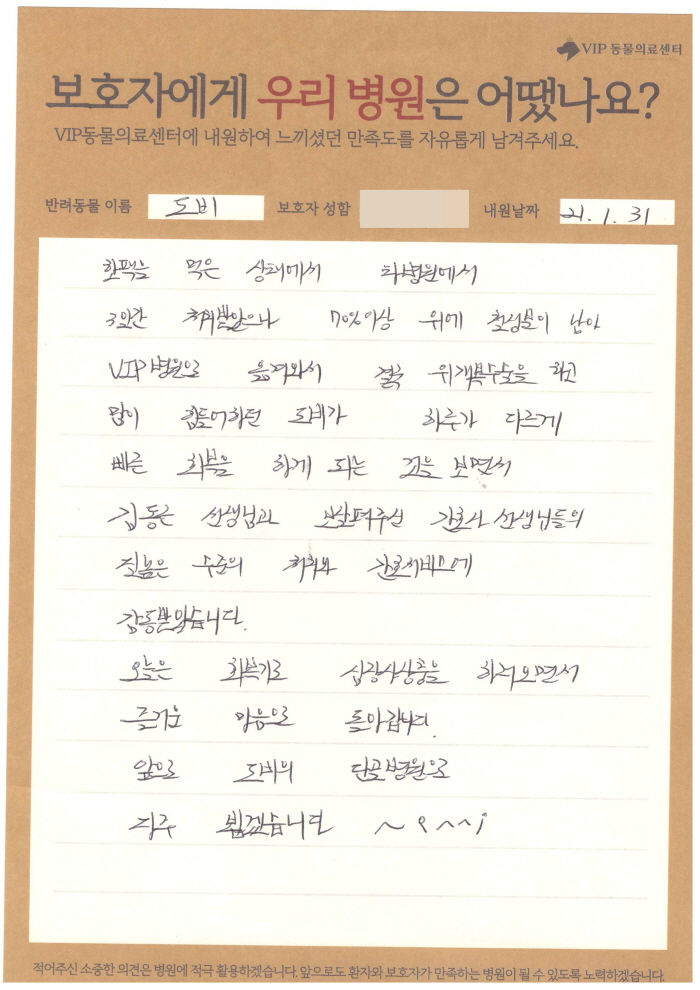 VIP 동물의료센터
보호자에게 우리 병원은 어땠나요?
VIP동물의료센터에 내원하여 느끼셨던 만족도를 자유롭게 남겨주세요.
반려동물 이름 도비 보호자 성함 내원날짜 21. 1. 31
핫팩을 먹은 상태에서 타병원에서
3일간 처치받았으나 70%이상 위에 철성분이 남아
VIP병원으로 옮겨와서 결국 위개복수술을 하고
많이 힘들어하던 도비가 하루가 다르게
빠른 회복을 하게 되는 것을 보면서
김동근 선생님과 보살펴주신 간호사 선생님들의
질높은 수준의 처치와 간호서비스에
감동받았습니다.
오늘은 회복기로 심장사상충을 하러오면서
즐거운 마음으로 돌아갑니다.
앞으로 도비의 단골병원으로
자주 뵙겠습니다 ~ ^^
적어주신 소중한 의견은 병원에 적극 활용하겠습니다. 앞으로도 환자와 보호자가 만족하는 병원이 될 수 있도록 노력하겠습니다.